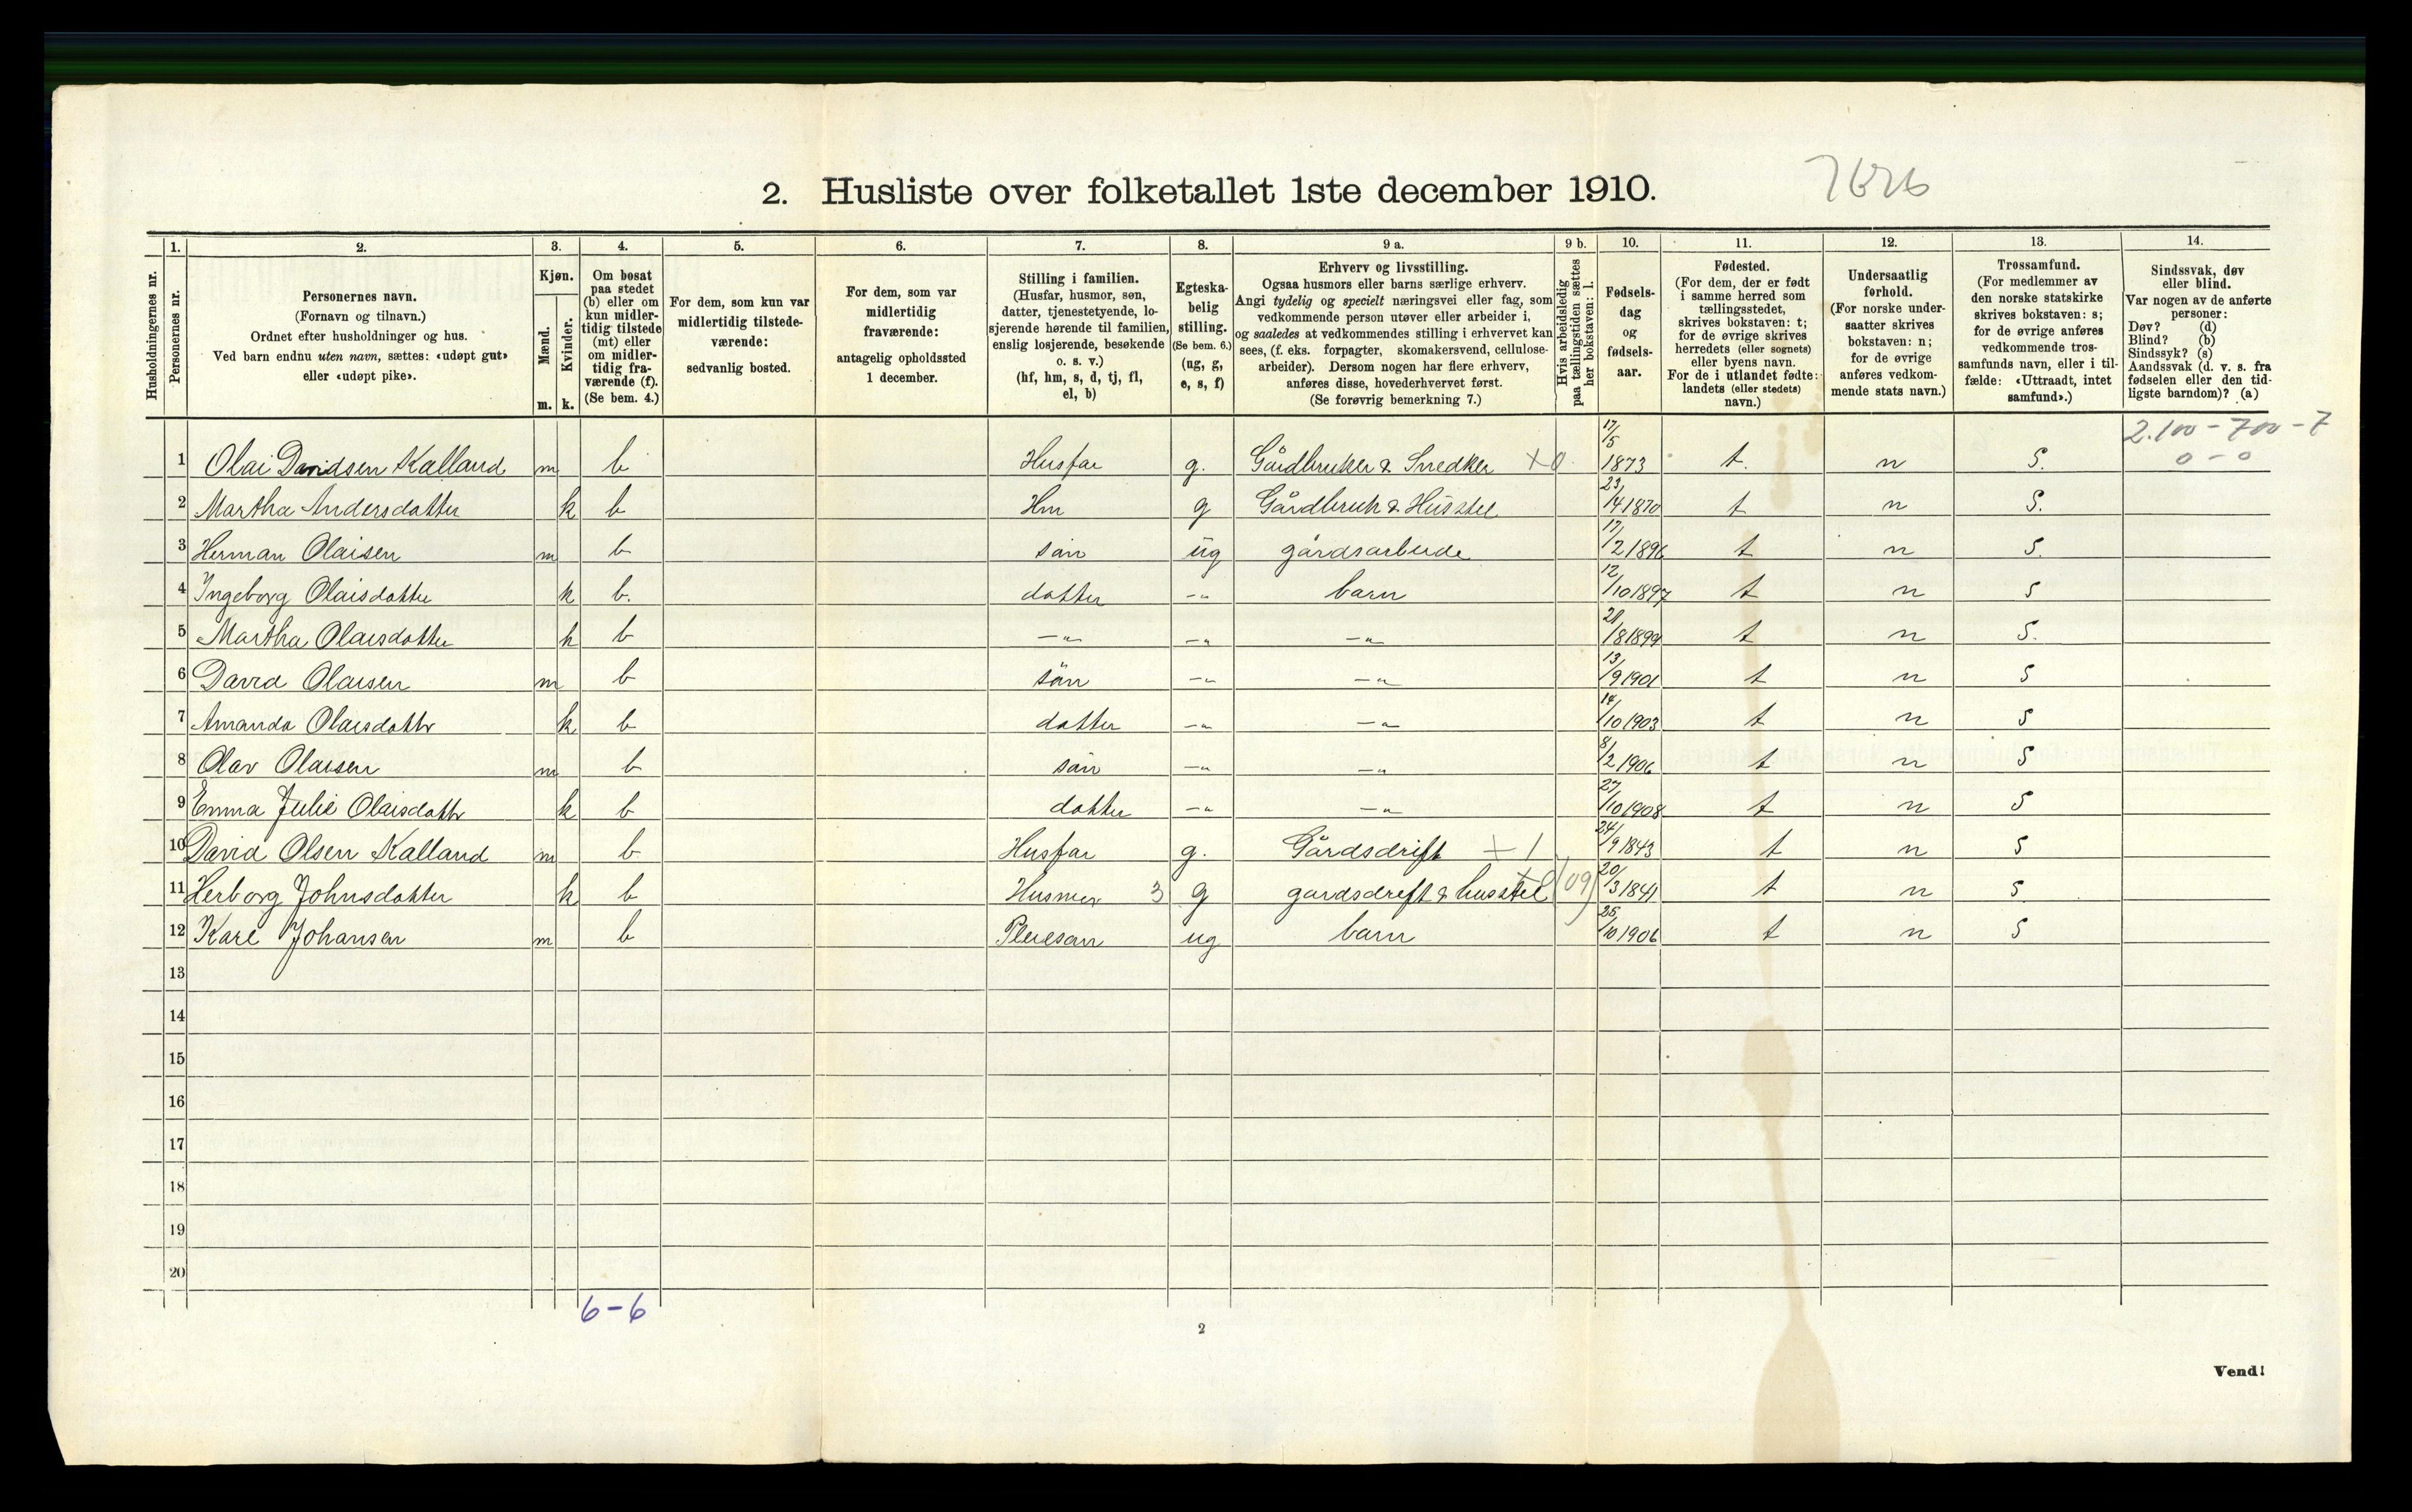 2. Husliste over folketallet 1ste december 1910.
Husholdningernes nr.
1. Personernes nr.
2. Personernes navn.
(Fornavn og tilnavn.)
Ordnet efter husholdninger og hus.
Ved barn endnu uten navn, sættes: «udøpt gut»
eller «udøpt pike».
3. Kjøn.
Mænd. m.
Kvinder. k.
4. Om bosat
paa stedet
(b) eller om
kun midler-
tidig tilstede
(mt) eller
om midler-
tidig fra-
værende (f).
(Se bem. 4.)
5. For dem, som kun var
midlertidig tilstede-
værende:
sedvanlig bosted.
6. For dem, som var
midlertidig
fraværende:
antagelig opholdssted
1 december.
7. Stilling i familien.
(Husfar, husmor, søn,
datter, tjenestetyende, lo-
sjerende hørende til familien,
enslig losjerende, besøkende
o. s. v.)
(hf, hm, s, d, tj, fl,
el, b)
8. Egteska-
belig
stilling.
(Se bem. 6.)
(ug, g,
e, s, f)
9 a. Erhverv og livsstilling.
Ogsaa husmors eller barns særlige erhverv.
Angi tydelig og specielt næringsvei eller fag, som
vedkommende person utøver eller arbeider i,
og saaledes at vedkommendes stilling i erhvervet kan
sees, (f. eks. forpagter, skomakersvend, cellulose-
arbeider). Dersom nogen har flere erhverv,
anføres disse, hovederhvervet først.
(Se forøvrig bemerkning 7.)
9 b. Hvis arbeidsledig
paa tællingstiden sættes
her bokstaven: l.
10. Fødsels-
dag
og
fødsels-
aar.
11. Fødested.
(For dem, der er født
i samme herred som
tællingsstedet,
skrives bokstaven: t;
for de øvrige skrives
herredets (eller sognets)
eller byens navn.
For de i utlandet fødte:
landets (eller stedets)
navn.)
12. Undersaatlig
forhold.
(For norske under-
saatter skrives
bokstaven: n;
for de øvrige
anføres vedkom-
mende stats navn.)
13. Trossamfund.
(For medlemmer av
den norske statskirke
skrives bokstaven: s;
for de øvrige anføres
vedkommende tros-
samfunds navn, eller i til-
fælde: «Uttraadt, intet
samfund».)
14. Sindssvak, døv
eller blind.
Var nogen av de anførte
personer:
Døv? (d)
Blind? (b)
Sindssyk? (s)
Aandssvak (d. v. s. fra
fødselen eller den tid-
ligste barndom)? (a)
2.100 - 700 - 7
0 - 0
1 Olai Davidsen Kalland m b Husfar g. Gårdbruker & Snedker x0 17/5 1873 t. n S.
2 Martha Andersdatter k b Hm g Gårdbruk & Husstel 23/4 1870 t n S.
3 Herman Olaisen m b sön ug gårdsarbeide 17/2 1896 t n S.
4 Ingeborg Olaisdatter k b. datter -"- barn 12/10 1897 t n S
5 Martha Olaisdatter k b -"- -"- -"- /8 1899 t n S.
6 David Olaisen m b sön -"- -"- 13/9 1901 t n S
7 Amanda Olaisdattr k b datter -"- -"- 14/10 1903 t n S
8 Olav Olaisen m b sön -"- -"- 8/2 1906 t n S
9 Emma Julie Olaisdattr k b datter -"- -"- 27/10 1908 t n S
10 David Olsen Kalland m b Husfar g. Gårdsdrift x 1 24/9 1843 t n S
11 Herborg Johnsdatter k b Husmor 3 g gardsdrift & husstel (09) 20/3 1841 t n S.
12 Kare Johansen m b Pleiesøn ug barn 25/10 1906 t n S
13
14
15
16
17
18
19
20
6-6
2
Vend!